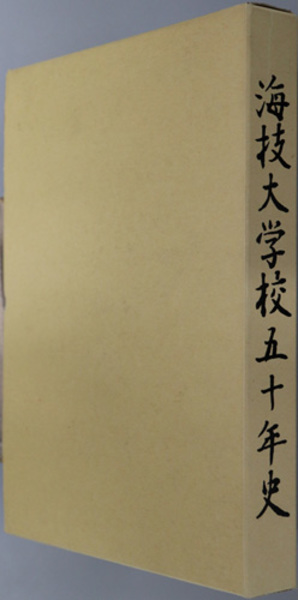 海技大学校五十年史